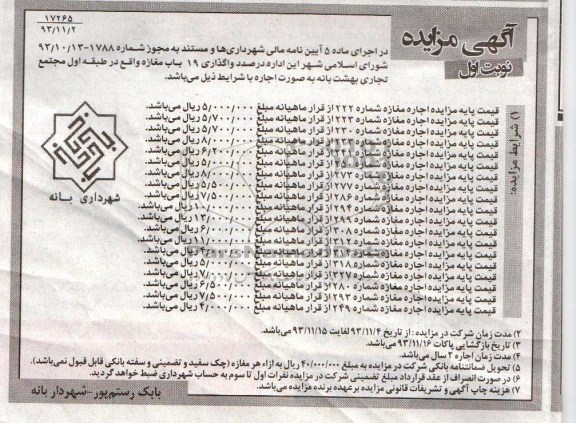 ۱۷۲۶۵
۹۳/۱۱/۲
آگهی مزایده
نوبت اول
در اجرای ماده ۵ آیین نامه مالی شهرداری‌ها و مستند به مجوز شماره ۱۷۸۸-۹۳/۱۰/۱۳
شورای اسلامی شهر این اداره درصدد واگذاری ۱۹ باب مغازه واقع در طبقه اول مجتمع
تجاری بهشت بانه به صورت اجاره با شرایط ذیل می‌باشد.
۱) شرایط مزایده:
قیمت پایه مزایده اجاره مغازه شماره ۲۲۲ از قرار ماهیانه مبلغ ۵/۰۰۰/۰۰۰ ریال می‌باشد.
قیمت پایه مزایده اجاره مغازه شماره ۲۲۳ از قرار ماهیانه مبلغ ۵/۷۰۰/۰۰۰ ریال می‌باشد.
قیمت پایه مزایده اجاره مغازه شماره ۲۳۰ از قرار ماهیانه مبلغ ۵/۷۰۰/۰۰۰ ریال می‌باشد.
قیمت پایه مزایده اجاره مغازه شماره از قرار ماهیانه مبلغ ریال می‌باشد.
قیمت پایه مزایده اجاره مغازه شماره از قرار ماهیانه مبلغ ریال می‌باشد.
قیمت پایه مزایده اجاره مغازه شماره از قرار ماهیانه مبلغ ریال می‌باشد.
قیمت پایه مزایده اجاره مغازه شماره ۲۷۳ از قرار ماهیانه مبلغ ریال می‌باشد.
قیمت پایه مزایده اجاره مغازه شماره ۲۷۷ از قرار ماهیانه مبلغ ۵/۵۰۰/۰۰۰ ریال می‌باشد.
قیمت پایه مزایده اجاره مغازه شماره ۲۸۶ از قرار ماهیانه مبلغ ۷/۵۰۰/۰۰۰ ریال می‌باشد.
قیمت پایه مزایده اجاره مغازه شماره ۲۹۴ از قرار ماهیانه مبلغ ریال می‌باشد.
قیمت پایه مزایده اجاره مغازه شماره ۲۹۹ از قرار ماهیانه مبلغ ریال می‌باشد.
قیمت پایه مزایده اجاره مغازه شماره ۳۰۸ از قرار ماهیانه مبلغ ریال می‌باشد.
قیمت پایه مزایده اجاره مغازه شماره ۳۱۲ از قرار ماهیانه مبلغ ریال می‌باشد.
قیمت پایه مزایده اجاره مغازه شماره از قرار ماهیانه مبلغ ریال می‌باشد.
قیمت پایه مزایده اجاره مغازه شماره ۳۱۸ از قرار ماهیانه مبلغ ریال می‌باشد.
قیمت پایه مزایده اجاره مغازه شماره ۳۲۷ از قرار ماهیانه مبلغ ریال می‌باشد.
قیمت پایه مزایده اجاره مغازه شماره ۲۸۰ از قرار ماهیانه مبلغ ۶/۵۰۰/۰۰۰ ریال می‌باشد.
قیمت پایه مزایده اجاره مغازه شماره ۲۹۳ از قرار ماهیانه مبلغ ۷/۵۰۰/۰۰۰ ریال می‌باشد.
قیمت پایه مزایده اجاره مغازه شماره ۲۴۹ از قرار ماهیانه مبلغ ۴/۰۰۰/۰۰۰ ریال می‌باشد.
شهرداری بانه
۲) مدت زمان شرکت در مزایده: از تاریخ ۹۳/۱۱/۴ لغایت ۹۳/۱۱/۱۵ می‌باشد.
۳) تاریخ بازگشایی پاکات ۹۳/۱۱/۱۶ می‌باشد.
۴) مدت زمان اجاره ۲ سال می‌باشد.
۵) تحویل ضمانتنامه بانکی شرکت در مزایده به مبلغ ۴۰/۰۰۰/۰۰۰ ریال به ازاء هر مغازه (چک سفید و تضمینی و سفته بانکی قابل قبول نمی‌باشد).
۶) در صورت انصراف از عقد قرارداد مبلغ تضمینی شرکت در مزایده نفرات اول تا سوم به حساب شهرداری ضبط خواهد گردید.
۷) هزینه چاپ آگهی و تشریفات قانونی مزایده بر عهده برنده مزایده می‌باشد.
بابک رستم‌پور-شهردار بانه